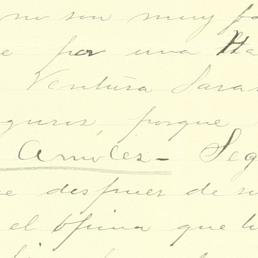 no son muy fa
e por una Ha
Ventura Sara
guros, porque
Armoles - Seg
e despues de s
el opina que l